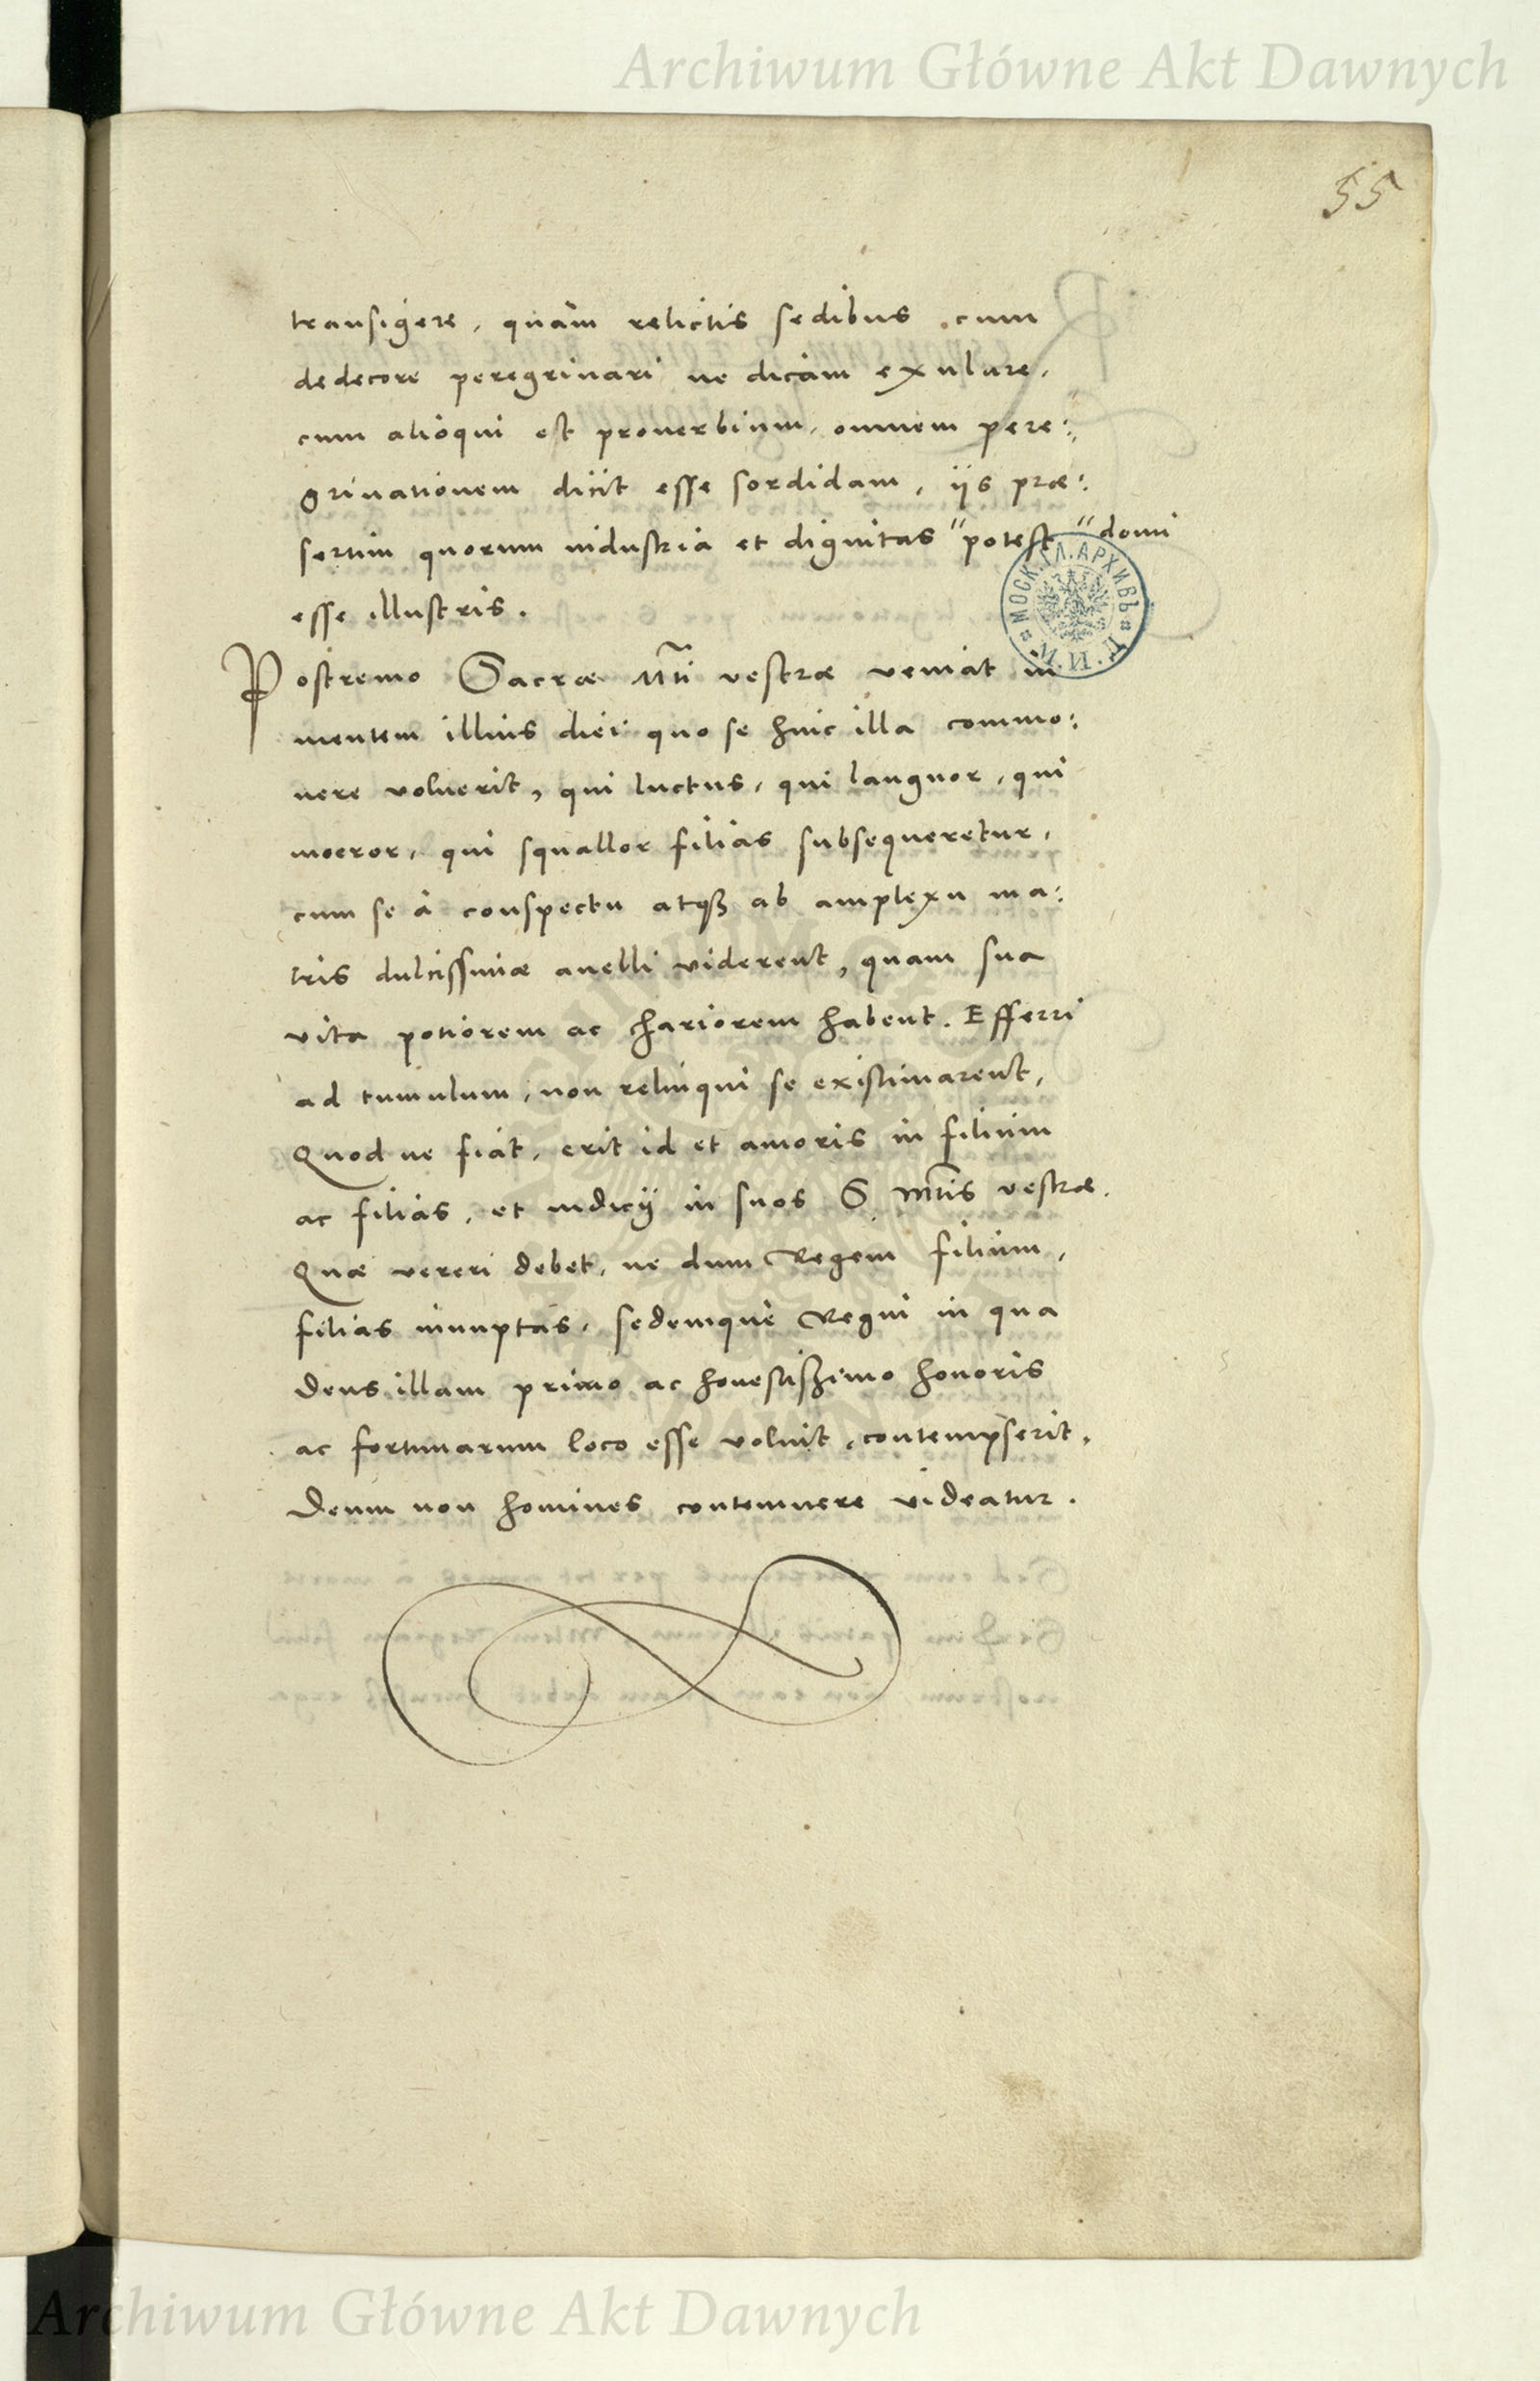 Archiwum Główne Akt Dawnych
55
transigere, quàm relictis sedibus cum
dedecore peregrinari ne dicam exulare,
cum alioqui est prouerbium, omnem pere:
grinationem dicit esse sordidam, ijs præ:
sertim quorum industria et dignitas "potest "domi
esse illustris.
МОСК. ГЛ. АРХИВЪ
Postremo Sacræ Mti vestræ veniat in
mentem illius diei quo se huic illa commo:
uere voluerit, qui luctus, qui languor, qui
moeror, qui squallor filias subsequeretur,
cum se à conspectu atq3 ab amplexu ma:
tris dulcissimæ auelli viderent, quam sua
vita potiorem ac chariorem habent. Efferri
ad tumulum, non relinqui se existimarent,
Quod ne fiat, erit id et amoris in filium
ac filias, et iudicij in suos S. Mtis vestræ.
Quæ vereri debet, ne dum Regem filium,
filias innuptas, sedemque Regni in qua
Deus illam primo ac honestiszimo honoris
ac fortunarum loco esse voluit, contempserit,
Deum non homines contemnere videatur.
Archiwum Główne Akt Dawnych